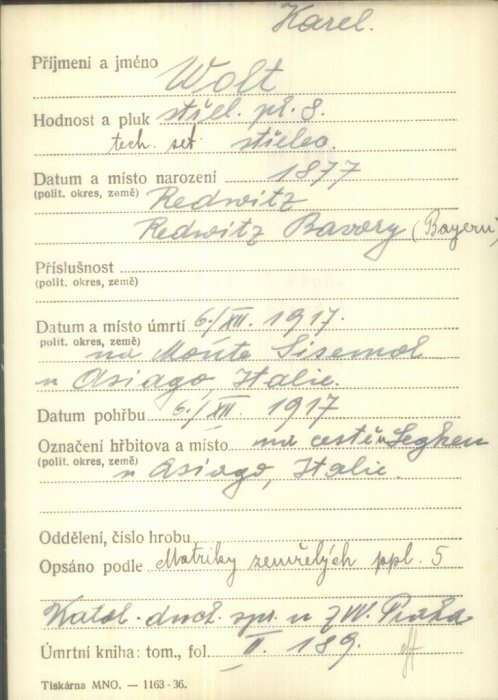 Karel.
Příjmení a jméno Wolt
Hodnost a pluk střel. pl. 8.
tech. set. střelec
Datum a místo narození 1877
(polit. okres, země) Redwitz
Redwitz Bavory (Bayern)
Příslušnost
(polit. okres, země)
Datum a místo úmrtí 6./XII. 1917.
polit. okres, země)
na Monte Sisemol
u Asiago, Italie.
Datum pohřbu 6./XII. 1917
Označení hřbitova a místo na cestě u Leghen
(polit. okres, země)
u Asiago, Italie.
Oddělení, číslo hrobu
Opsáno podle Matriky zemřelých ppl. 5
Katol. duch. spr. u ZVV. Praha
Úmrtní kniha: tom., fol. II. 189.
Tiskárna MNO. — 1163-36.